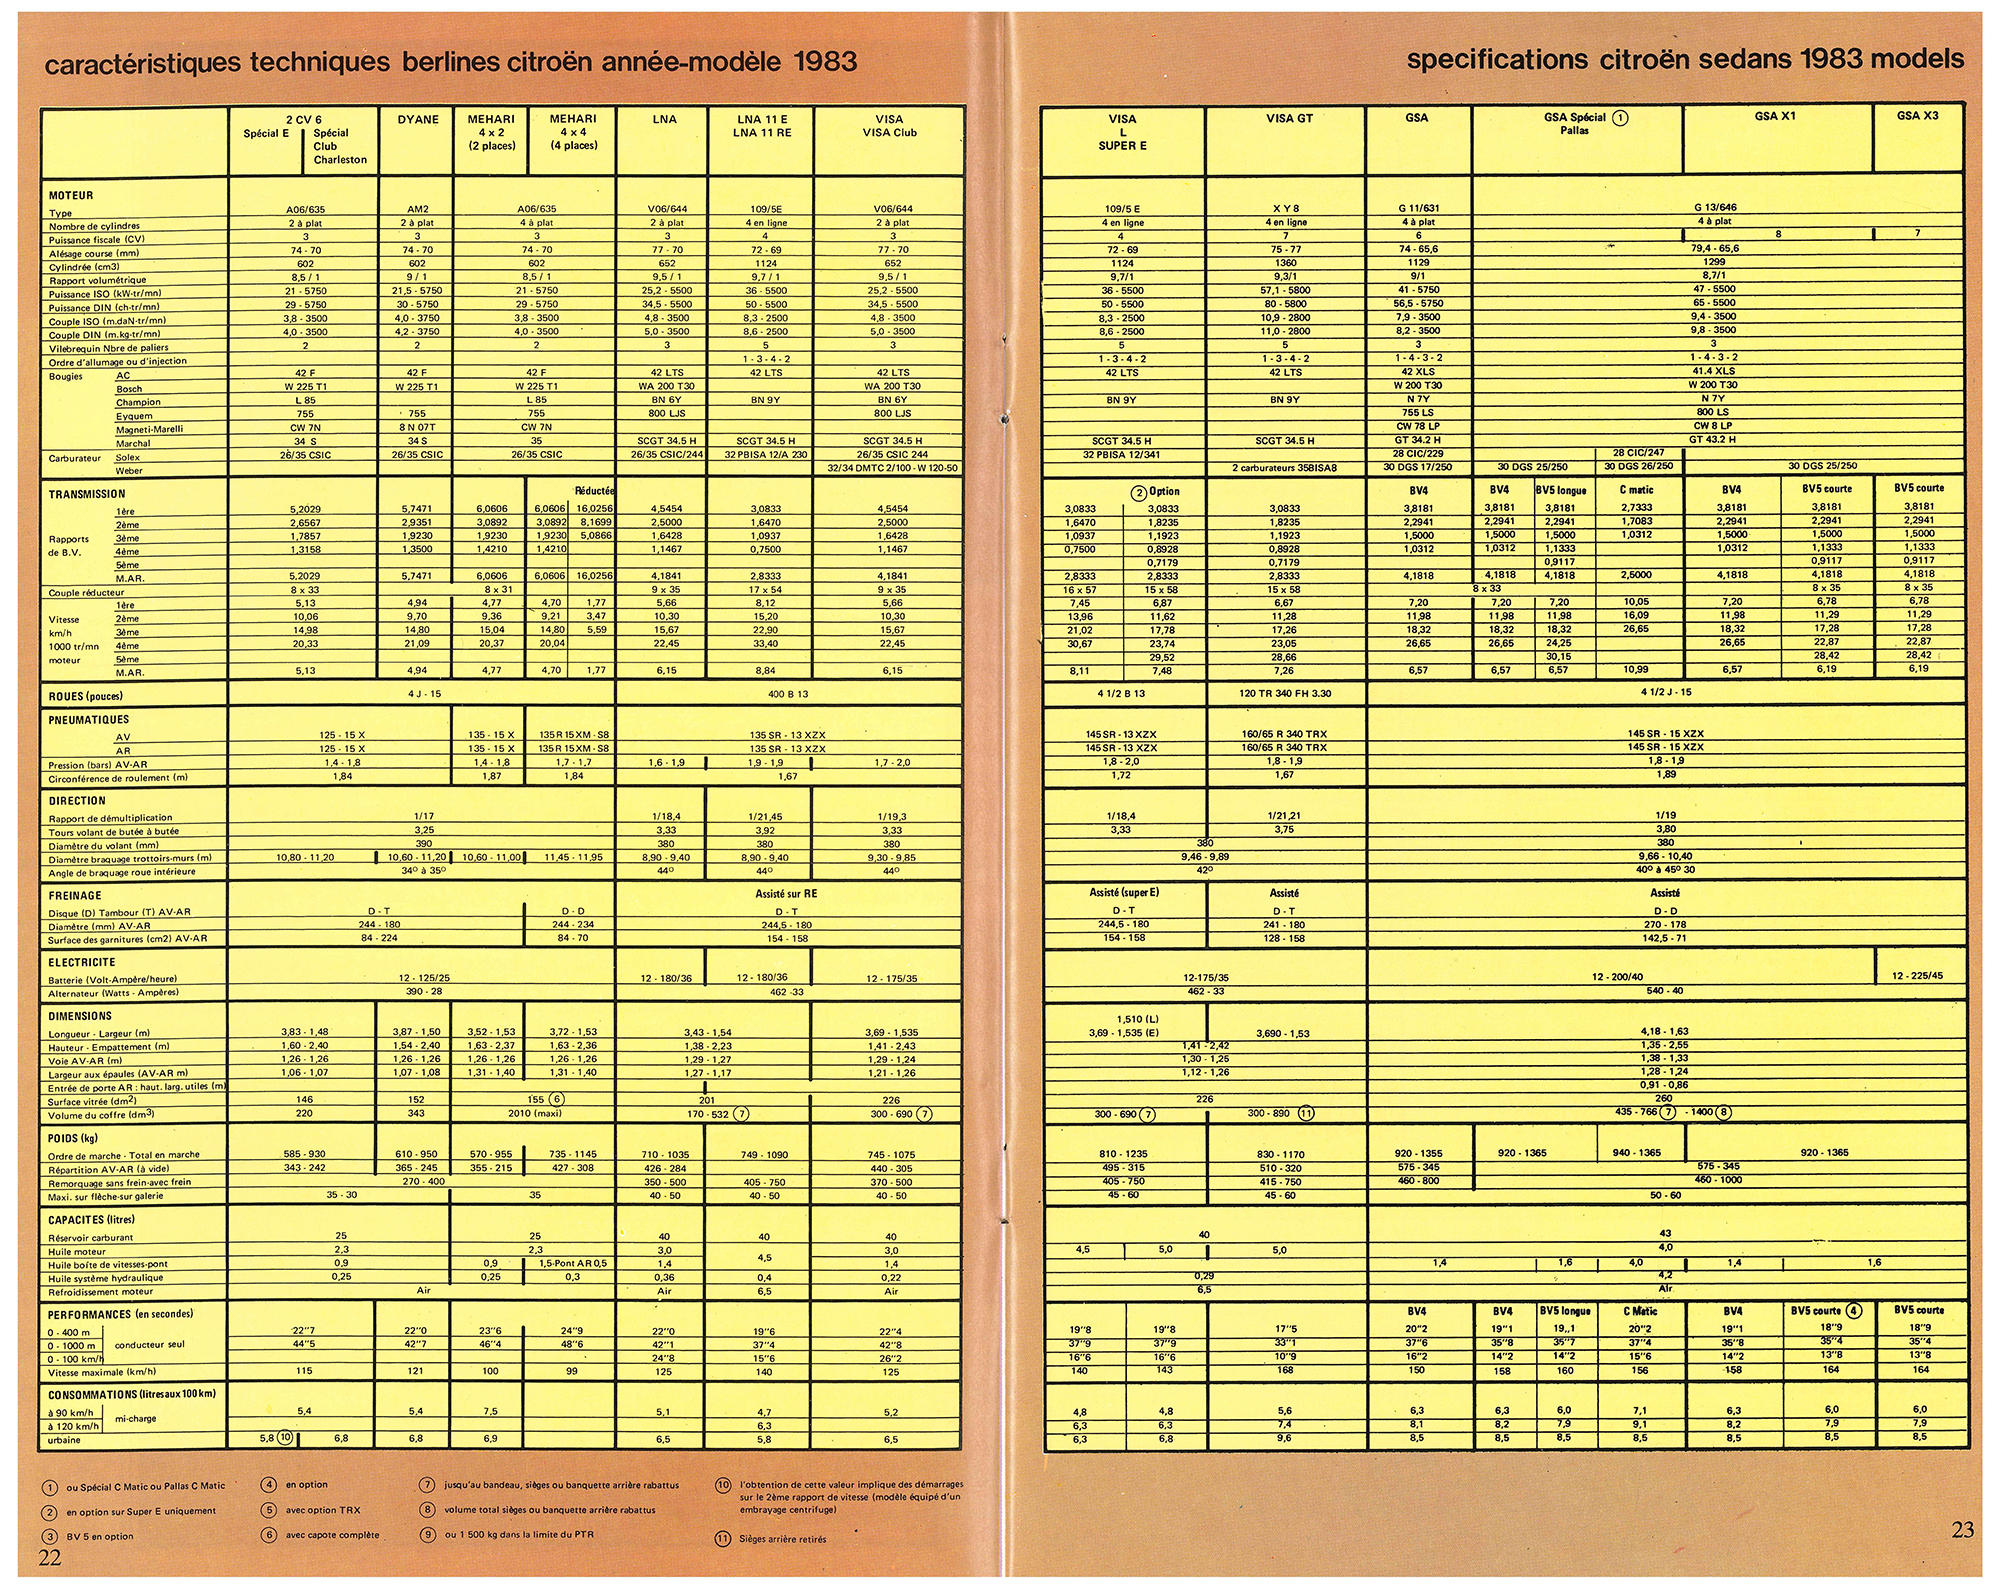 caractéristiques techniques berlines citroën année-modèle 1983
2 CV 6 DYANE MEHARI MEHARI LNA LNA 11 E VISA
Spécial E Spécial 4 x 2 4 x 4 LNA 11 RE VISA Club
Club (2 places) (4 places)
Charleston
MOTEUR
Type A06/635 AM2 A06/635 V06/644 109/5E V06/644
Nombre de cylindres 2 à plat 2 à plat 4 à plat 2 à plat 4 en ligne 2 à plat
Puissance fiscale (CV) 3 3 3 3 4 3
Alésage course (mm) 74 - 70 74 - 70 74 - 70 77 - 70 72 - 69 77 - 70
Cylindrée (cm3) 602 602 602 652 1124 652
Rapport volumétrique 8,5 / 1 9 / 1 8,5 / 1 9,5 / 1 9,7 / 1 9,5 / 1
Puissance ISO (kW-tr/mn) 21 - 5750 21,5 - 5750 21 - 5750 25,2 - 5500 36 - 5500 25,2 - 5500
Puissance DIN (ch-tr/mn) 29 - 5750 30 - 5750 29 - 5750 34,5 - 5500 50 - 5500 34,5 - 5500
Couple ISO (m.daN-tr/mn) 3,8 - 3500 4,0 - 3750 3,8 - 3500 4,8 - 3500 8,3 - 2500 4,8 - 3500
Couple DIN (m.kg-tr/mn) 4,0 - 3500 4,2 - 3750 4,0 - 3500 5,0 - 3500 8,6 - 2500 5,0 - 3500
Vilebrequin Nbre de paliers 2 2 2 3 5 3
Ordre d'allumage ou d'injection 1 - 3 - 4 - 2
Bougies AC 42 F 42 F 42 F 42 LTS 42 LTS 42 LTS
Bosch W 225 T1 W 225 T1 W 225 T1 WA 200 T30 WA 200 T30
Champion L 85 L 85 BN 6Y BN 9Y BN 6Y
Eyquem 755 755 755 800 LJS 800 LJS
Magneti-Marelli CW 7N 8 N 07T CW 7N
Marchal 34 S 34 S 35 SCGT 34.5 H SCGT 34.5 H SCGT 34.5 H
Carburateur Solex 26/35 CSIC 26/35 CSIC 26/35 CSIC 26/35 CSIC/244 32 PBISA 12/A 230 26/35 CSIC 244
Weber 32/34 DMTC 2/100 - W 120-50
TRANSMISSION Réductée
1ère 5,2029 5,7471 6,0606 6,0606 16,0256 4,5454 3,0833 4,5454
2ème 2,6567 2,9351 3,0892 3,0892 8,1699 2,5000 1,6470 2,5000
Rapports 3ème 1,7857 1,9230 1,9230 1,9230 5,0866 1,6428 1,0937 1,6428
de B.V. 4ème 1,3158 1,3500 1,4210 1,4210 1,1467 0,7500 1,1467
5ème
M.AR. 5,2029 5,7471 6,0606 6,0606 16,0256 4,1841 2,8333 4,1841
Couple réducteur 8 x 33 8 x 31 9 x 35 17 x 54 9 x 35
1ère 5,13 4,94 4,77 4,70 1,77 5,66 8,12 5,66
Vitesse 2ème 10,06 9,70 9,36 9,21 3,47 10,30 15,20 10,30
km/h 3ème 14,98 14,80 15,04 14,80 5,59 15,67 22,90 15,67
1000 tr/mn 4ème 20,33 21,09 20,37 20,04 22,45 33,40 22,45
moteur 5ème
M.AR. 5,13 4,94 4,77 4,70 1,77 6,15 8,84 6,15
ROUES (pouces) 4 J - 15 400 B 13
PNEUMATIQUES
AV 125 - 15 X 135 - 15 X 135 R 15 XM - S8 135 SR - 13 XZX
AR 125 - 15 X 135 - 15 X 135 R 15 XM - S8 135 SR - 13 XZX
Pression (bars) AV-AR 1,4 - 1,8 1,4 - 1,8 1,7 - 1,7 1,6 - 1,9 1,9 - 1,9 1,7 - 2,0
Circonférence de roulement (m) 1,84 1,87 1,84 1,67
DIRECTION
Rapport de démultiplication 1/17 1/18,4 1/21,45 1/19,3
Tours volant de butée à butée 3,25 3,33 3,92 3,33
Diamètre du volant (mm) 390 380 380 380
Diamètre braquage trottoirs-murs (m) 10,80 - 11,20 10,60 - 11,20 10,60 - 11,00 11,45 - 11,95 8,90 - 9,40 8,90 - 9,40 9,30 - 9,85
Angle de braquage roue intérieure 34º à 35º 44º 44º 44º
FREINAGE Assisté sur RE
Disque (D) Tambour (T) AV-AR D - T D - D D - T
Diamètre (mm) AV-AR 244 - 180 244 - 234 244,5 - 180
Surface des garnitures (cm2) AV-AR 84 - 224 84 - 70 154 - 158
ELECTRICITE
Batterie (Volt-Ampère/heure) 12 - 125/25 12 - 180/36 12 - 180/36 12 - 175/35
Alternateur (Watts - Ampères) 390 - 28 462 -33
DIMENSIONS
Longueur - Largeur (m) 3,83 - 1,48 3,87 - 1,50 3,52 - 1,53 3,72 - 1,53 3,43 - 1,54 3,69 - 1,535
Hauteur - Empattement (m) 1,60 - 2,40 1,54 - 2,40 1,63 - 2,37 1,63 - 2,36 1,38 - 2,23 1,41 - 2,43
Voie AV-AR (m) 1,26 - 1,26 1,26 - 1,26 1,26 - 1,26 1,26 - 1,26 1,29 - 1,27 1,29 - 1,24
Largeur aux épaules (AV-AR m) 1,06 - 1,07 1,07 - 1,08 1,31 - 1,40 1,31 - 1,40 1,27 - 1,17 1,21 - 1,26
Entrée de porte AR : haut. larg. utiles (m)
Surface vitrée (dm2) 146 152 155 (6) 201 226
Volume du coffre (dm3) 220 343 2010 (maxi) 170 - 532 (7) 300 - 690 (7)
POIDS (kg)
Ordre de marche - Total en marche 585 - 930 610 - 950 570 - 955 735 - 1145 710 - 1035 749 - 1090 745 - 1075
Répartition AV-AR (à vide) 343 - 242 365 - 245 355 - 215 427 - 308 426 - 284 440 - 305
Remorquage sans frein-avec frein 270 - 400 350 - 500 405 - 750 370 - 500
Maxi. sur flèche-sur galerie 35 - 30 35 40 - 50 40 - 50 40 - 50
CAPACITES (litres)
Réservoir carburant 25 25 40 40 40
Huile moteur 2,3 2,3 3,0 4,5 3,0
Huile boîte de vitesses-pont 0,9 0,9 1,5-Pont AR 0,5 1,4 1,4
Huile système hydraulique 0,25 0,25 0,3 0,36 0,4 0,22
Refroidissement moteur Air Air 6,5 Air
PERFORMANCES (en secondes)
0 - 400 m 22"7 22"0 23"6 24"9 22"0 19"6 22"4
0 - 1000 m conducteur seul 44"5 42"7 46"4 48"6 42"1 37"4 42"8
0 - 100 km/h 24"8 15"6 26"2
Vitesse maximale (km/h) 115 121 100 99 125 140 125
CONSOMMATIONS (litres aux 100 km)
à 90 km/h mi-charge 5,4 5,4 7,5 5,1 4,7 5,2
à 120 km/h 6,3
urbaine 5,8 (10) 6,8 6,8 6,9 6,5 5,8 6,5
(1) ou Spécial C Matic ou Pallas C Matic
(2) en option sur Super E uniquement
(3) BV 5 en option
(4) en option
(5) avec option TRX
(6) avec capote complète
(7) jusqu'au bandeau, sièges ou banquette arrière rabattus
(8) volume total sièges ou banquette arrière rabattus
(9) ou 1 500 kg dans la limite du PTR
(10) l'obtention de cette valeur implique des démarrages
sur le 2ème rapport de vitesse (modèle équipé d'un
embrayage centrifuge)
(11) Sièges arrière retirés
22
specifications citroën sedans 1983 models
VISA VISA GT GSA GSA Spécial (1) GSA X1 GSA X3
L Pallas
SUPER E
109/5 E X Y 8 G 11/631 G 13/646
4 en ligne 4 en ligne 4 à plat 4 à plat
4 7 6 8 7
72 - 69 75 - 77 74 - 65,6 79,4 - 65,6
1124 1360 1129 1299
9,7/1 9,3/1 9/1 8,7/1
36 - 5500 57,1 - 5800 41 - 5750 47 - 5500
50 - 5500 80 - 5800 56,5 - 5750 65 - 5500
8,3 - 2500 10,9 - 2800 7,9 - 3500 9,4 - 3500
8,6 - 2500 11,0 - 2800 8,2 - 3500 9,8 - 3500
5 5 3 3
1 - 3 - 4 - 2 1 - 3 - 4 - 2 1 - 4 - 3 - 2 1 - 4 - 3 - 2
42 LTS 42 LTS 42 XLS 41.4 XLS
W 200 T30 W 200 T30
BN 9Y BN 9Y N 7Y N 7Y
755 LS 800 LS
CW 78 LP CW 8 LP
SCGT 34.5 H SCGT 34.5 H GT 34.2 H GT 43.2 H
32 PBISA 12/341 28 CIC/229 28 CIC/247
2 carburateurs 35BISA8 30 DGS 17/250 30 DGS 25/250 30 DGS 26/250 30 DGS 25/250
(2) Option BV4 BV4 BV5 longue C matic BV4 BV5 courte BV5 courte
3,0833 3,0833 3,0833 3,8181 3,8181 3,8181 2,7333 3,8181 3,8181 3,8181
1,6470 1,8235 1,8235 2,2941 2,2941 2,2941 1,7083 2,2941 2,2941 2,2941
1,0937 1,1923 1,1923 1,5000 1,5000 1,5000 1,0312 1,5000 1,5000 1,5000
0,7500 0,8928 0,8928 1,0312 1,0312 1,1333 1,0312 1,1333 1,1333
0,7179 0,7179 0,9117 0,9117 0,9117
2,8333 2,8333 2,8333 4,1818 4,1818 4,1818 2,5000 4,1818 4,1818 4,1818
16 x 57 15 x 58 15 x 58 8 x 33 8 x 35 8 x 35
7,45 6,87 6,67 7,20 7,20 7,20 10,05 7,20 6,78 6,78
13,96 11,62 11,28 11,98 11,98 11,98 16,09 11,98 11,29 11,29
21,02 17,78 17,26 18,32 18,32 18,32 26,65 18,32 17,28 17,28
30,67 23,74 23,05 26,65 26,65 24,25 26,65 22,87 22,87
29,52 28,66 30,15 28,42 28,42
8,11 7,48 7,26 6,57 6,57 6,57 10,99 6,57 6,19 6,19
4 1/2 B 13 120 TR 340 FH 3.30 4 1/2 J - 15
145 SR - 13 XZX 160/65 R 340 TRX 145 SR - 15 XZX
145 SR - 13 XZX 160/65 R 340 TRX 145 SR - 15 XZX
1,8 - 2,0 1,8 - 1,9 1,8 - 1,9
1,72 1,67 1,89
1/18,4 1/21,21 1/19
3,33 3,75 3,80
380 380
9,46 - 9,89 9,66 - 10,40
42º 40º à 45º 30
Assisté (super E) Assisté Assisté
D - T D - T D - D
244,5 - 180 241 - 180 270 - 178
154 - 158 128 - 158 142,5 - 71
12-175/35 12 - 200/40 12 - 225/45
462 - 33 540 - 40
1,510 (L)
3,69 - 1,535 (E) 3,690 - 1,53 4,18 - 1,63
1,41 - 2,42 1,35 - 2,55
1,30 - 1,25 1,38 - 1,33
1,12 - 1,26 1,28 - 1,24
0,91 - 0,86
226 260
300 - 690 (7) 300 - 890 (11) 435 - 766 (7) - 1400 (8)
810 - 1235 830 - 1170 920 - 1355 920 - 1365 940 - 1365 920 - 1365
495 - 315 510 - 320 575 - 345 575 - 345
405 - 750 415 - 750 460 - 800 460 - 1000
45 - 60 45 - 60 50 - 60
40 43
4,5 5,0 5,0 4,0
1,4 1,6 4,0 1,4 1,6
0,29 4,2
6,5 Air
BV4 BV4 BV5 longue C Matic BV4 BV5 courte (4) BV5 courte
19"8 19"8 17"5 20"2 19"1 19,,1 20"2 19"1 18"9 18"9
37"9 37"9 33"1 37"6 35"8 35"7 37"4 35"8 35"4 35"4
16"6 16"6 10"9 16"2 14"2 14"2 15"6 14"2 13"8 13"8
140 143 168 150 158 160 156 158 164 164
4,8 4,8 5,6 6,3 6,3 6,0 7,1 6,3 6,0 6,0
6,3 6,3 7,4 8,1 8,2 7,9 9,1 8,2 7,9 7,9
6,3 6,8 9,6 8,5 8,5 8,5 8,5 8,5 8,5 8,5
23